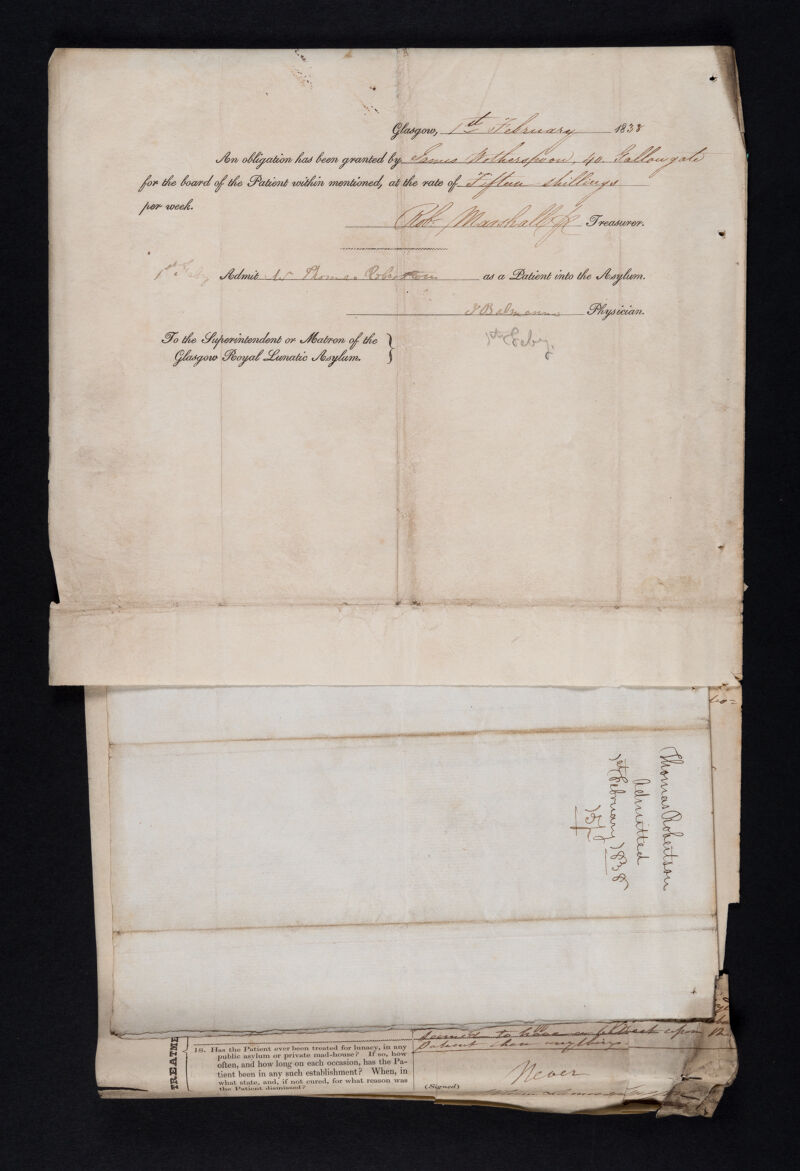 Glasgow, 1st February 1838
An obligation has been granted by James Wotherspoon, 40. Gallowgate
for the board of the Patient within mentioned, at the rate of Fifteen shillings
per week.
Robt Marshall Treasurer.
1st Feby Admit Mr Thomas Robertson as a Patient into the Asylum.
J Balmanno Physician.
1st Feby.
To the Superintendent or Matron of the
Glasgow Royal Lunatic Asylum.
Thomas Robertson
Admitted
1st February 1838
15/
seemed to have an effect upon
Patient than anything.
TREATME
18. Has the Patient ever been treated for lunacy, in any
public asylum or private mad-house? If so, how
often, and how long on each occasion, has the Pa-
tient been in any such establishment? When, in
what state, and, if not cured, for what reason was
the Patient dismissed?
Never
(Signed)